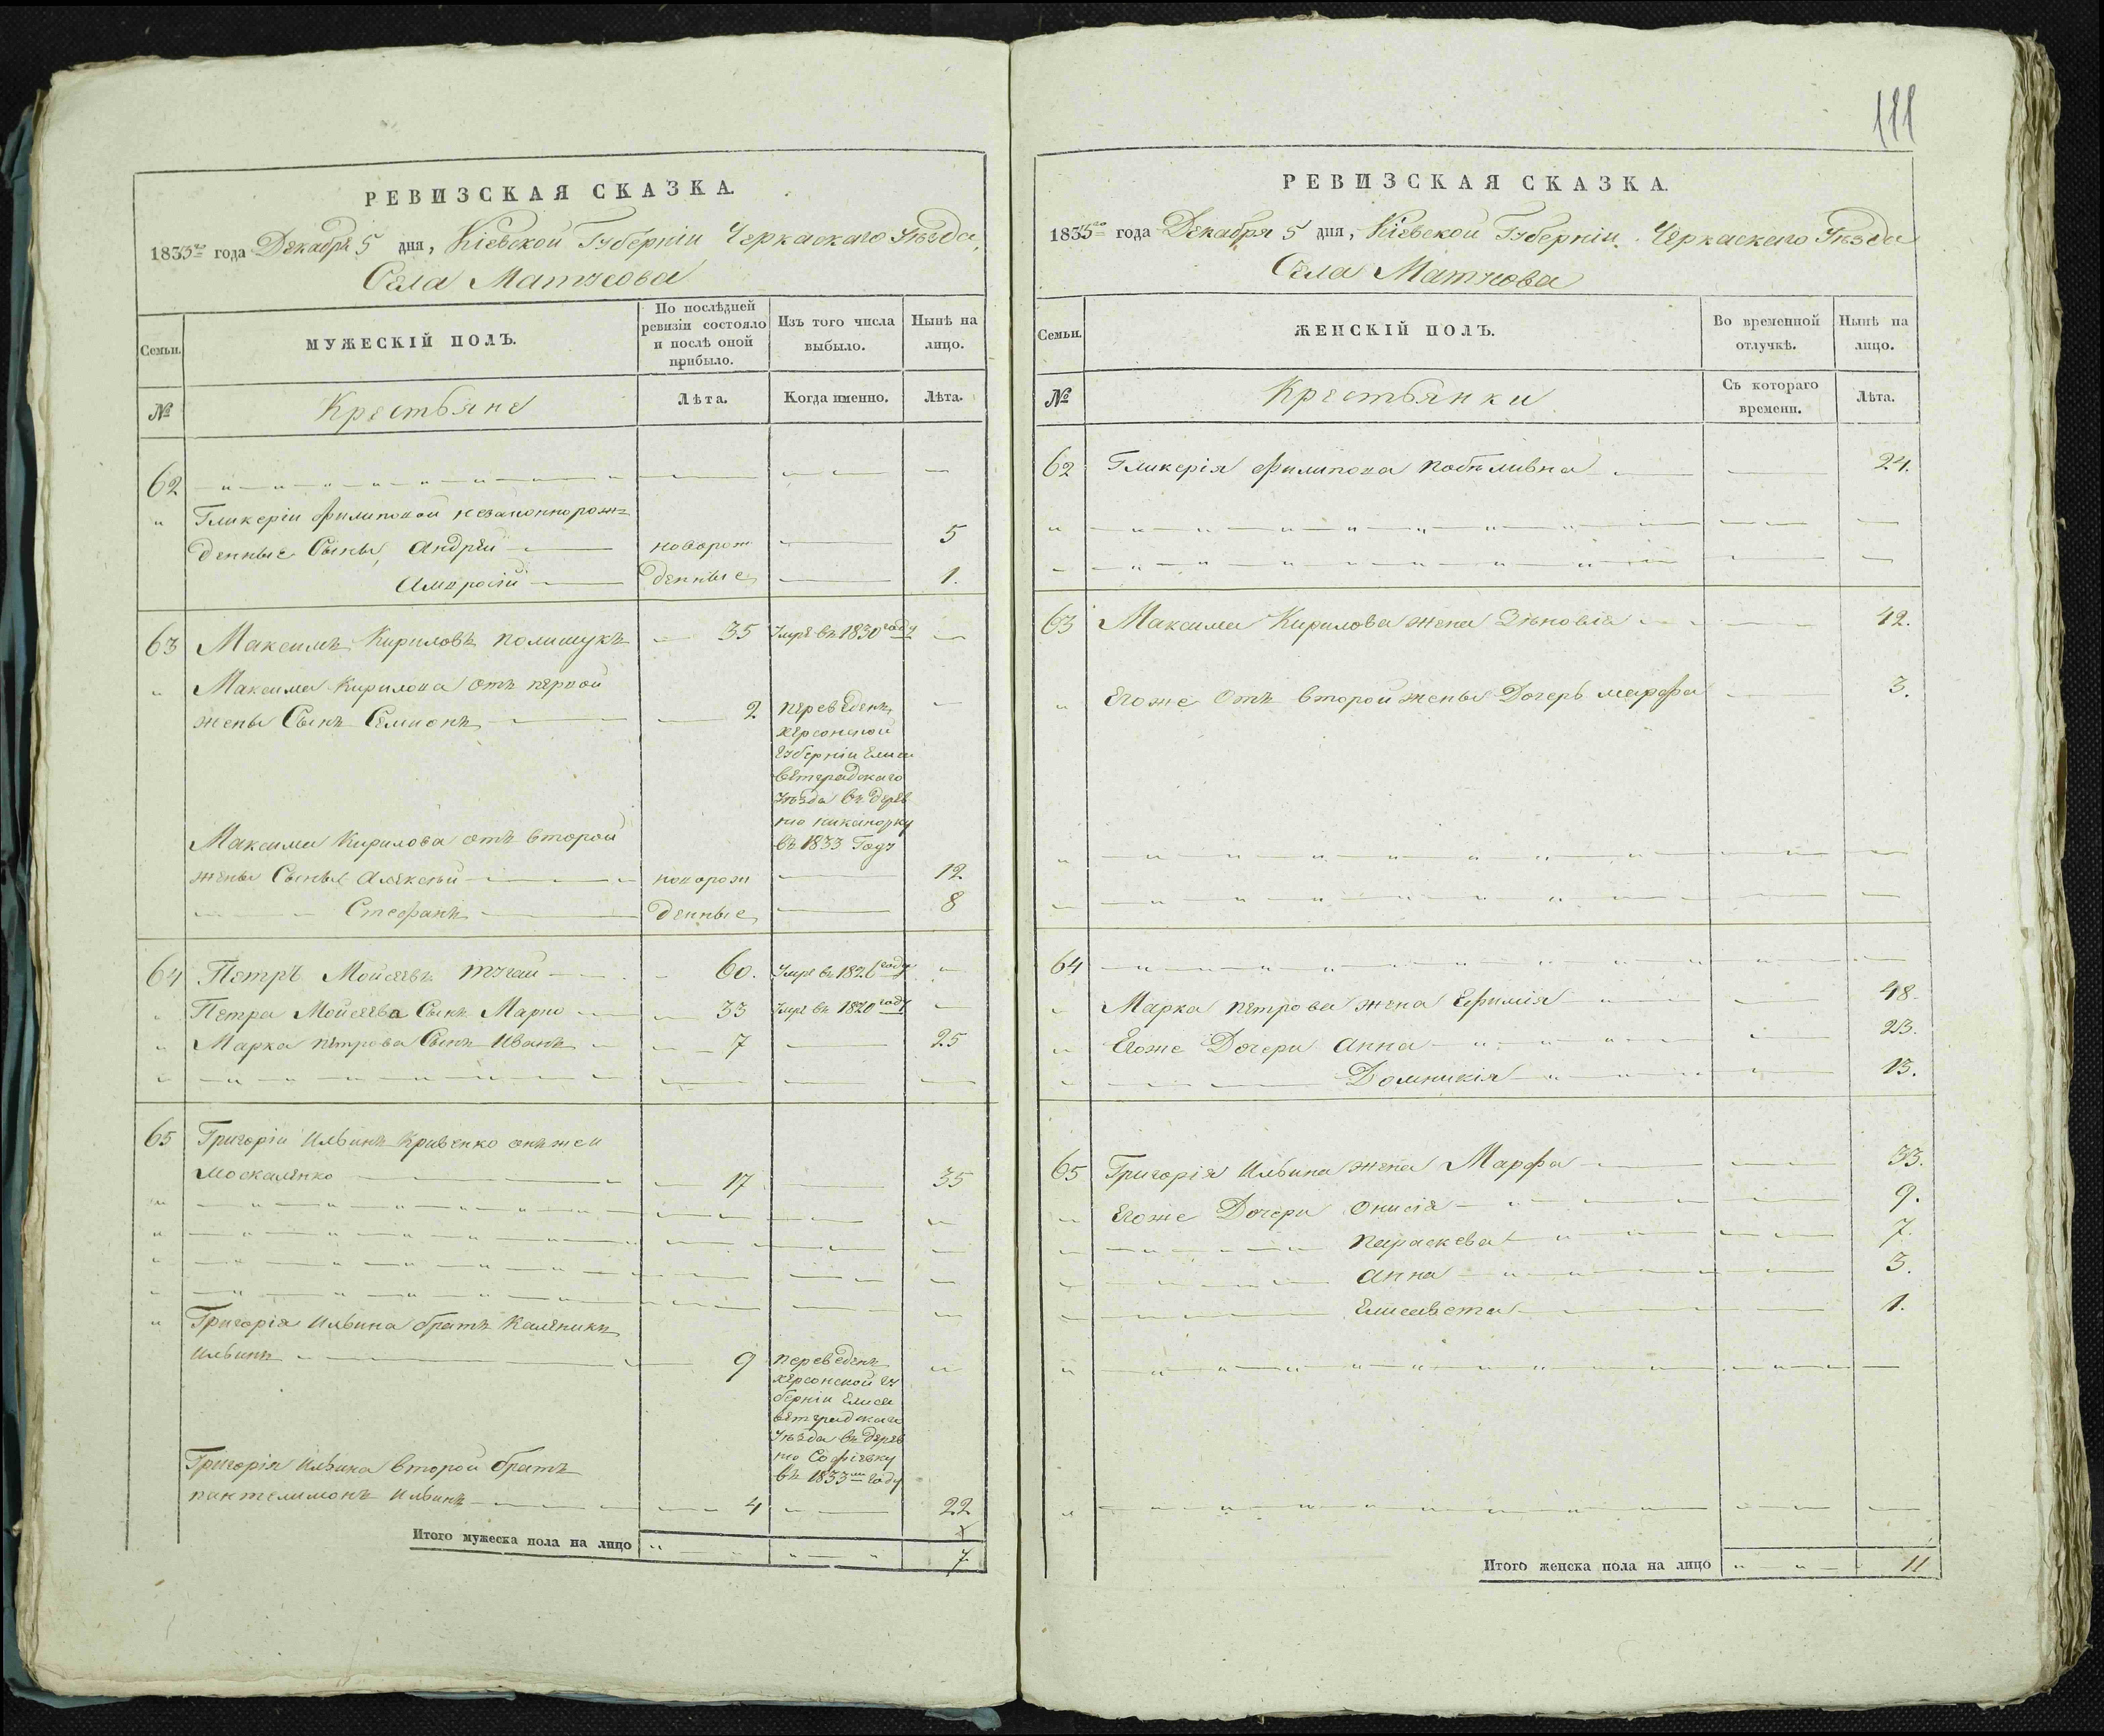 111
РЕВИЗСКАЯ СКАЗКА.
1835го года Декабря 5 дня, Кіевской Губерніи Черкаскаго Уѣзда,
Села Матусова
Семьи.
МУЖЕСКІЙ ПОЛЪ.
По послѣдней ревизіи состояло и послѣ оной прибыло.
Изъ того числа выбыло.
Нынѣ на лицо.
№
Крестьяне
Лѣта.
Когда именно.
Лѣта.
62
" Гликеріи Филиповой незаконнорож=
денные Сыны, Андрей новорож 5
Амвросій денные 1.
63 Максимъ Кириловъ Полищукъ 35 Умре въ 1830 году
" Максима Кирилова отъ первой
жены Сынъ Семионъ 2 переведенъ
херсонской
Губерніи Елиса
ветградскаго
Уѣзда въ дерев
ню никанорку
въ 1833 Году
Максима Кирилова отъ второй
жены Сыны Алексѣй новорож 12
Стефанъ денные 8
64 Петръ Мойсеевъ 60. Умре въ 1826 году
Петра Мойсеева Сынъ Марко 33 Умре въ 1820 году
" Марка петрова Сынъ Иванъ 7 25
65 Григорій Ильинъ Кривенко онъ же и
москаленко 17 35
" Григорія Ильина братъ Каленикъ
Ильинъ 9 переведенъ
херсонской Гу
берніи Елиса
ветградскаго
Уѣзда въ дерев
ню Софіевку
въ 1833м году
Григорія Ильина второй братъ
пантелимонъ Ильинъ 4 22
Итого мужеска пола на лицо " " " " 7
РЕВИЗСКАЯ СКАЗКА.
1835го года Декабря 5 дня, Кіевской Губерніи Черкаскаго Уѣзда
Села Матусова
Семьи.
ЖЕНСКІЙ ПОЛЪ.
Во временной отлучкѣ.
Нынѣ на лицо.
№
Крестьянки
Съ котораго времени.
Лѣта.
62 Гликерія Филипова 24.
63 Максима Кирилова жена Зѣновія 42.
" Егоже Отъ второй жены Дочерь марфа 3.
64
Марка петрова жена Ефимія 48.
Егоже Дочери Анна 23.
Домникія 13.
65 Григорія Ильина жена Марфа 33.
Егоже Дочери Онисія 9.
параскева 7.
Анна 3.
Елисавета 1.
Итого женска пола на лицо " " 11